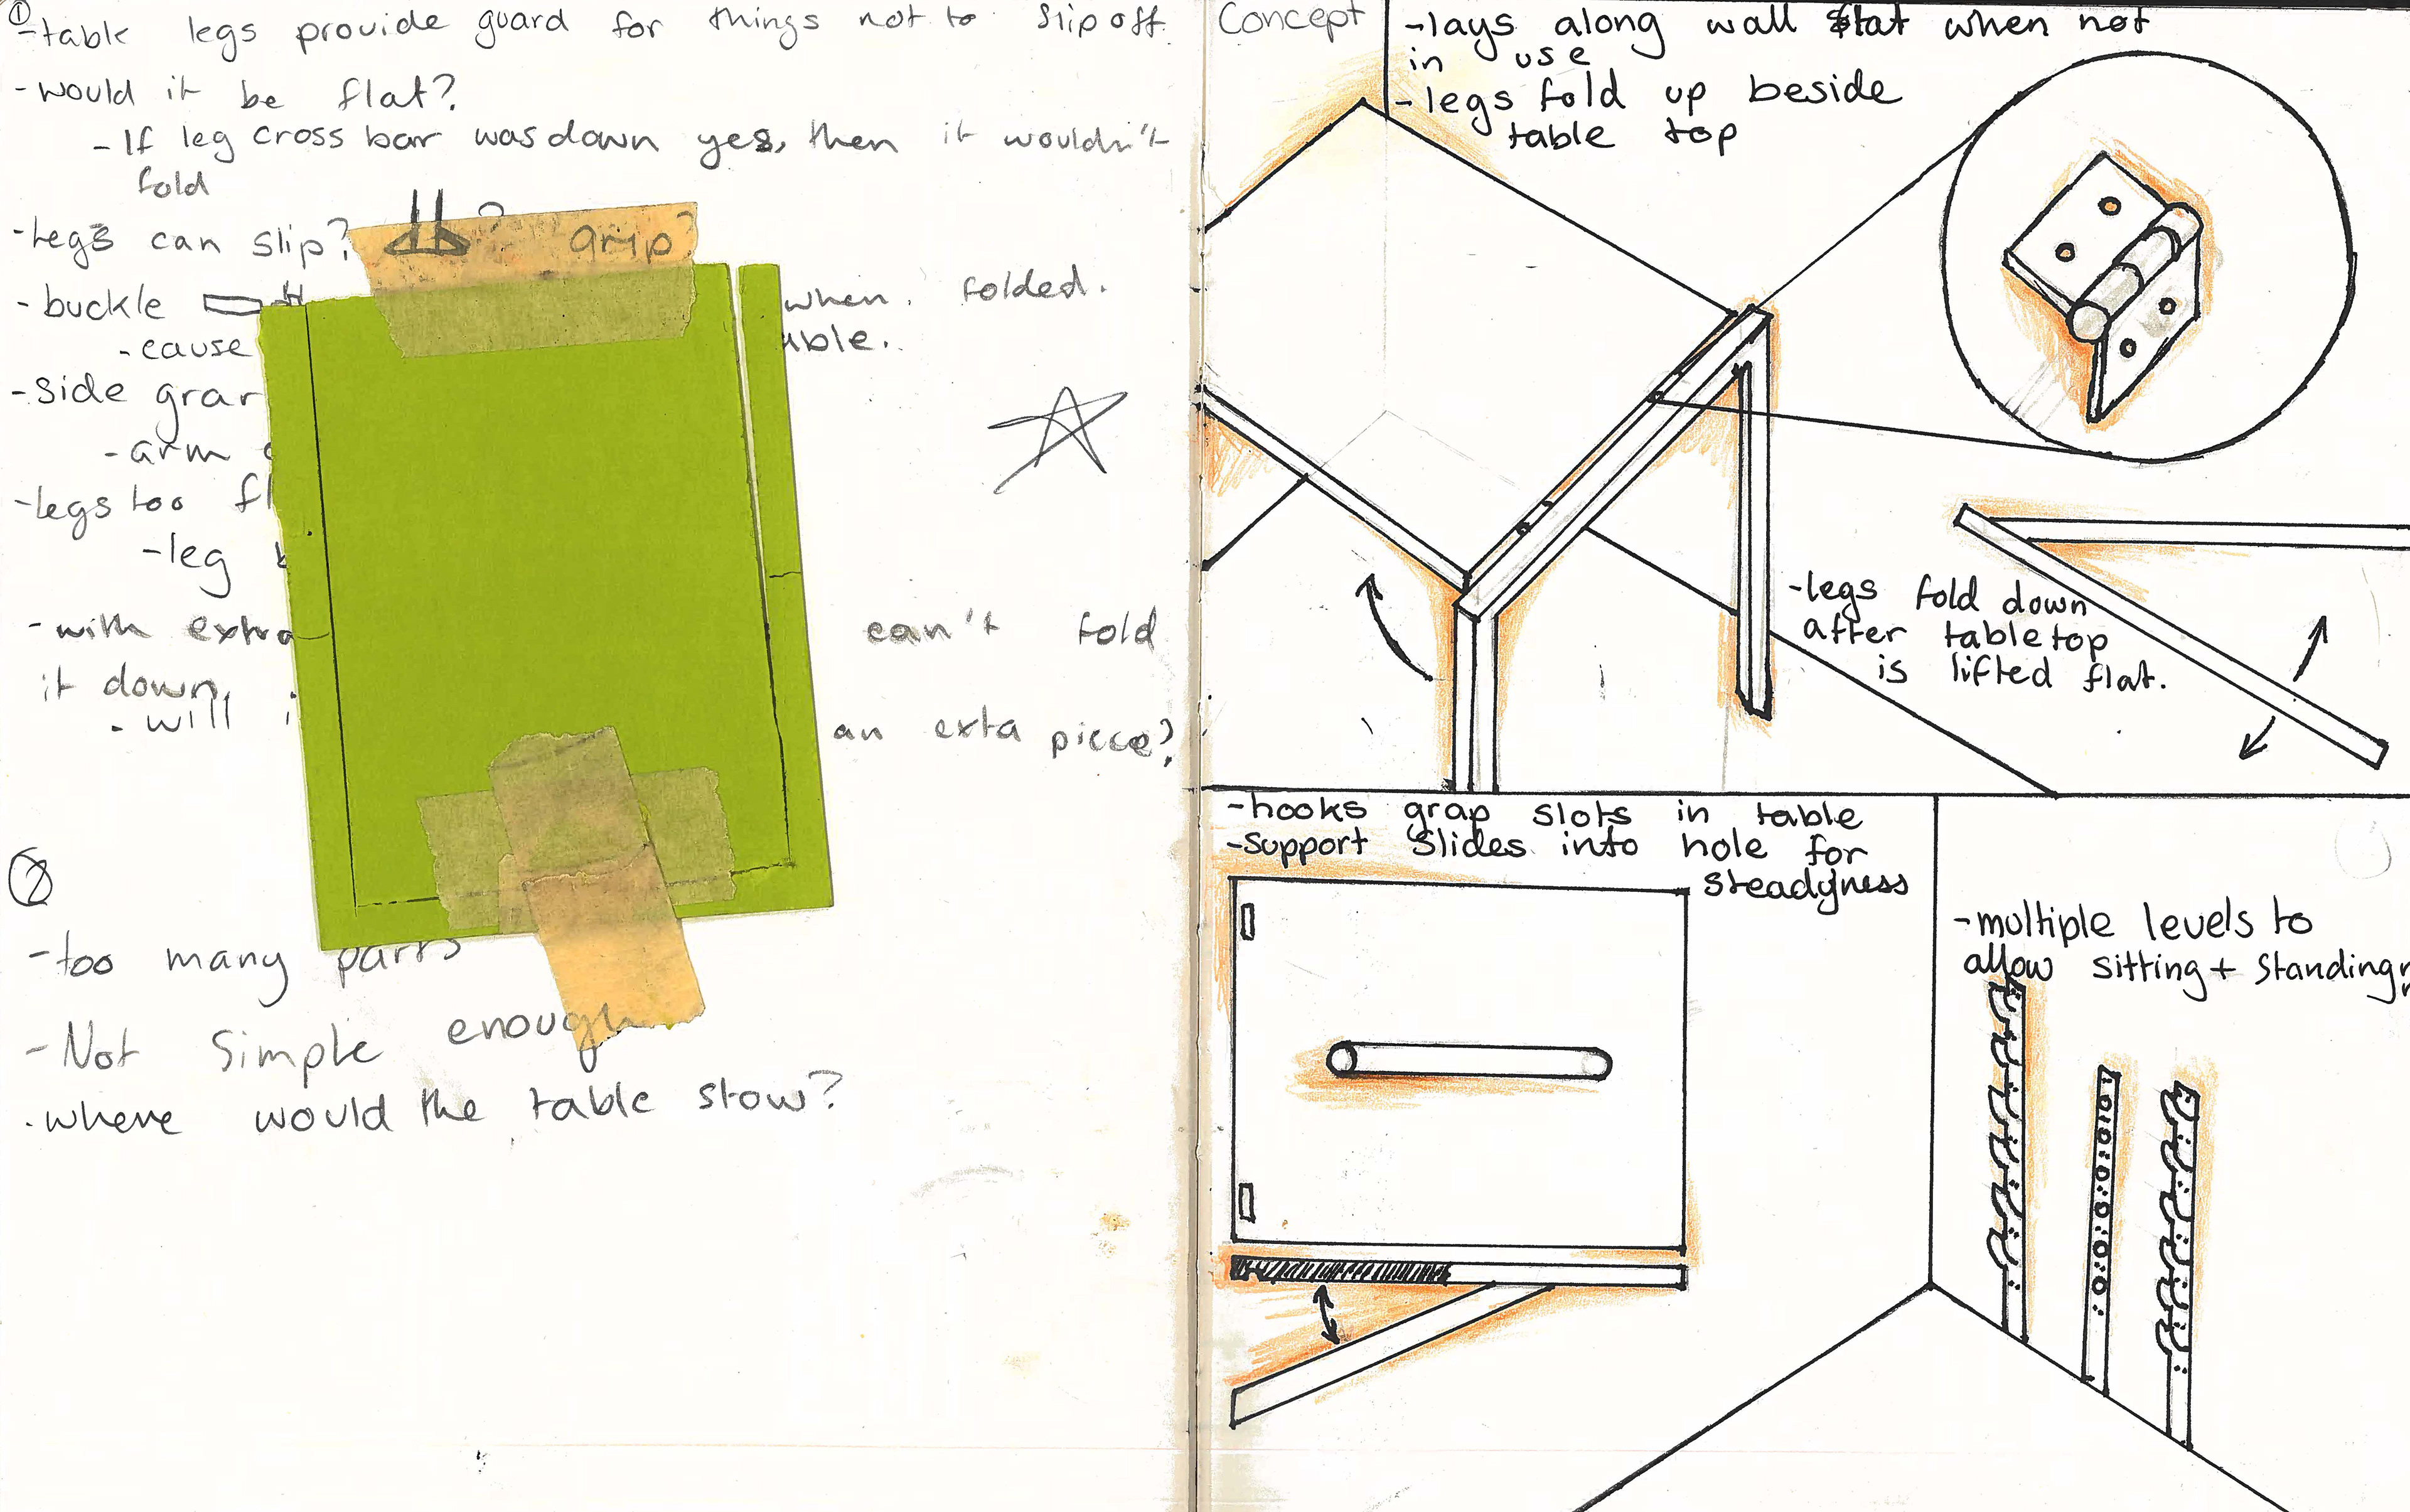 ①
-table legs provide guard for things not to slip off.
-would it be flat?
-If leg cross bar was down yes, then it wouldn't
fold
-legs can slip? ? grip?
-buckle when folded.
-cause able.
-side grar
-arm
-legs too fl
-leg b
-with extra can't fold
it down,
-will i an exta piece?
②
-too many parts
-Not simple enough
.where would the table stow?
Concept
-lays along wall flat when not
in use
-legs fold up beside
table top
-legs fold down
after tabletop
is lifted flat.
-hooks grap slots in table
-support slides into hole for
steadyness
-multiple levels to
allow sitting + standing